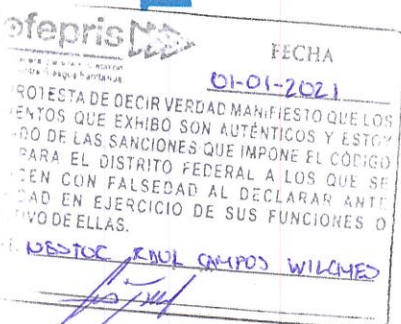 ofepris
FECHA
01-01-2021
ROTESTA DE DECIR VERDAD MANIFIESTO QUE LOS
ENTOS QUE EXHIBO SON AUTÉNTICOS Y ESTOY
DO DE LAS SANCIONES QUE IMPONE EL CÓDIGO
PARA EL DISTRITO FEDERAL A LOS QUE SE
CEN CON FALSEDAD AL DECLARAR ANTE
DAD EN EJERCICIO DE SUS FUNCIONES O
IVO DE ELLAS.
NESTOC RAUL CAMPOS WILCHES